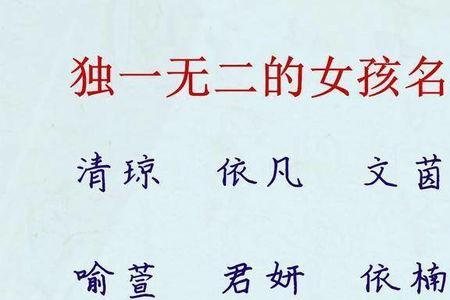 独一无二的女孩名
清琼 依凡 文茵
喻萱 君妍 依楠